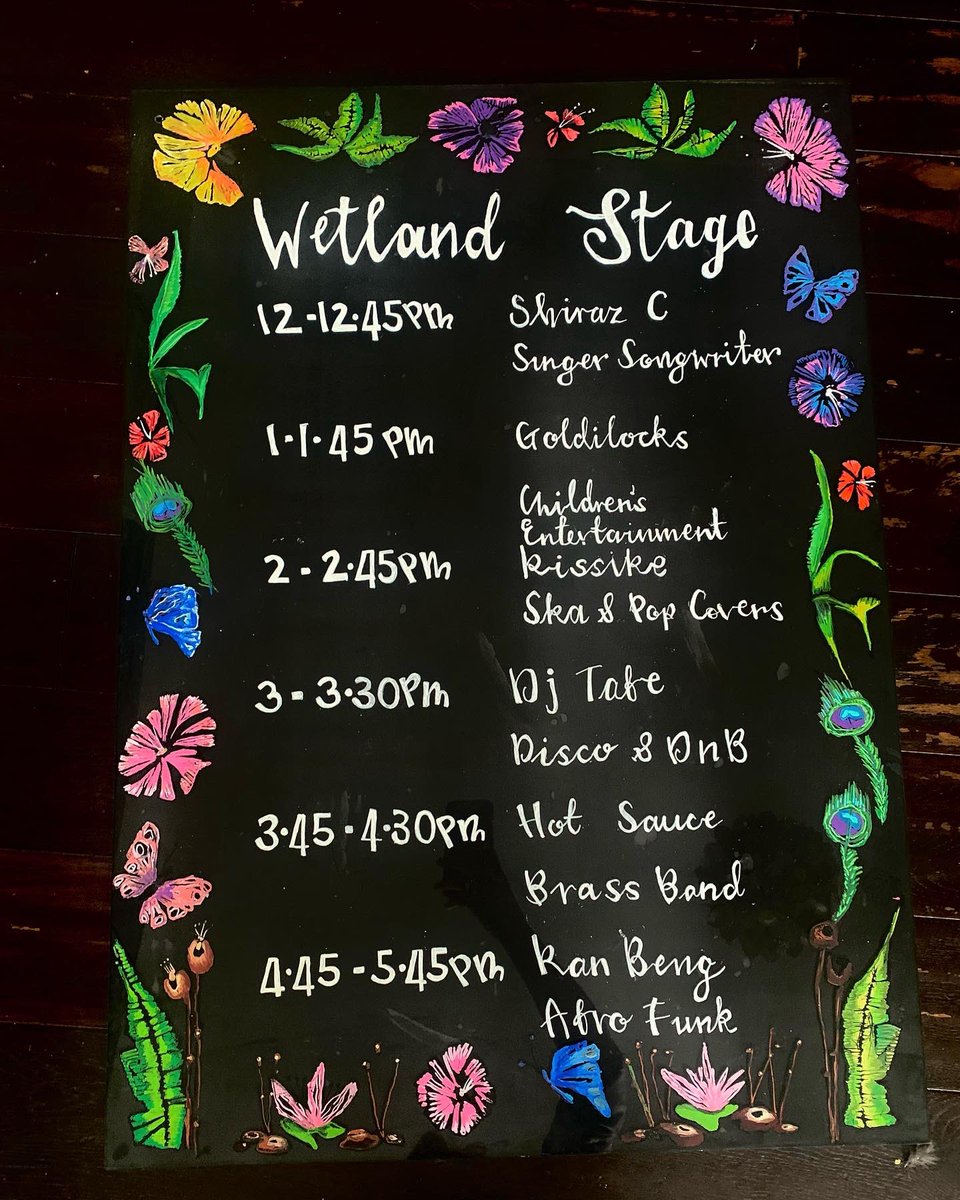 Wetland Stage
12-12.45pm Shiraz C
Singer Songwriter
1.1.45 pm Goldilocks
Children's
Entertainment
2 - 2.45pm Kissike
Ska & Pop Covers
3 - 3.30pm Dj Tafe
Disco & DnB
3.45 - 4.30pm Hot Sauce
Brass Band
4.45 - 5.45pm Kan Beng
Afro Funk